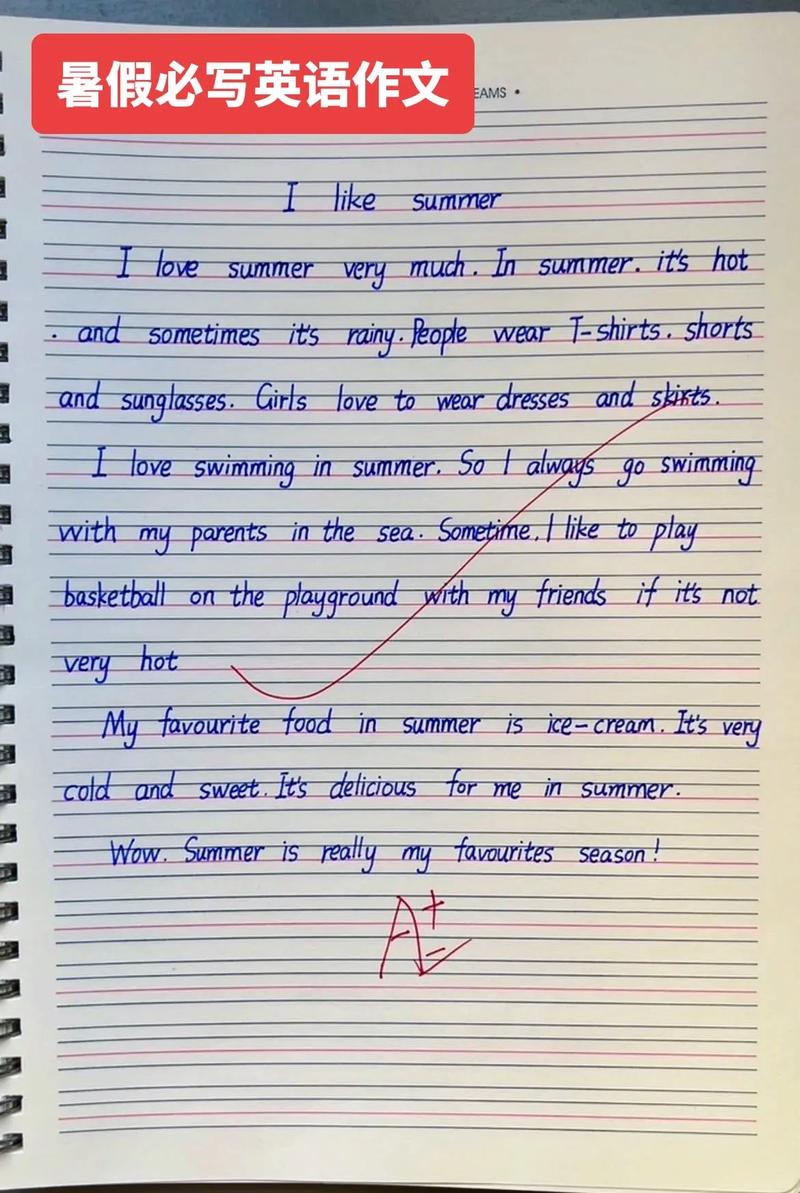 暑假必写英语作文
EAMS •
I like summer
I love summer very much. In summer. it's hot
. and sometimes it's rainy. People wear T-shirts. shorts
and sunglasses. Girls love to wear dresses and skirts.
I love swimming in summer. So I always go swimming
with my parents in the sea. Sometime. I like to play
basketball on the playground with my friends if it's not
very hot
My favourite food in summer is ice-cream. It's very
cold and sweet. It's delicious for me in summer.
Wow. Summer is really my favourites season!
A+